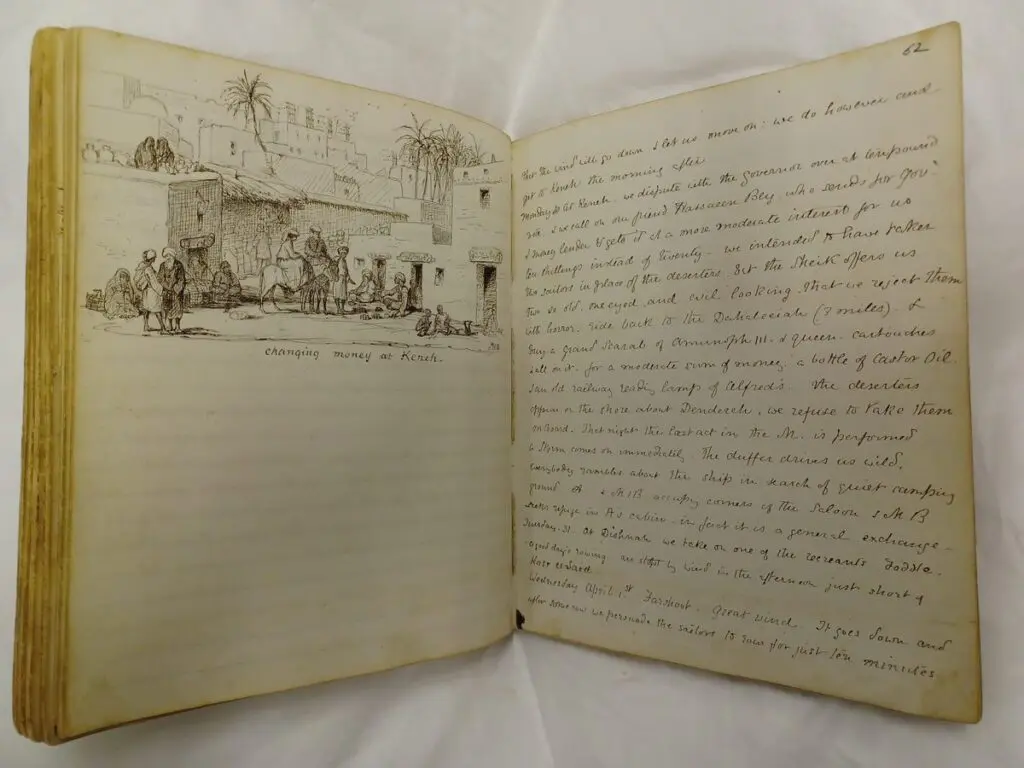 changing money at Keneh.
62
that the wind will go down & let us move on: we do however and
get to Keneh the morning after.
Monday 30 At Keneh. we dispute with the governor over a tenpound
note & we call on our friend Hassaeen Bey who sends for
a money lender & gets it at a more moderate interest for us
ten shillings instead of twenty. we intended to have taken
two sailors in place of the deserters but the Sheik offers us
two so old, one eyed, and evil looking, that we reject them
with horror. ride back to the Dahabeeiah (3 miles). &
buy a grand Scarab of Amunoph III. & queen. cartouches
all on it. for a moderate sum of money, a bottle of Castor Oil
& an old railway reading lamp of Alfred's. The deserters
appear on the shore about Denderah, we refuse to take them
on board. That night the last act in the M. is performed
a storm comes on immediately. The duffer drives us wild.
everybody rambles about the ship in search of quiet camping
ground A & MB occupy corners of the Saloon & MB
seeks refuge in A's cabin - in fact it is a general exchange -
Tuesday. 31. At Dishnah we take on one of the recreants
a good day's rowing are stopt by wind in the afternoon just short of
Kasr es Saed.
Wednesday April 1st Farshout. Great wind. It goes down and
after some row we persuade the sailors to row for just ten minutes